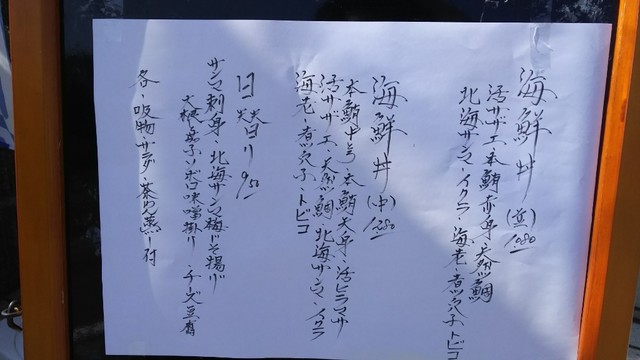 海鮮丼(並)1080
活サザエ・本鮪赤身・天然鯛
北海サンマ・イクラ・海老・煮穴子・トビコ
海鮮丼(中)1280
本鮪中とろ・本鮪赤身・活ヒラマサ
活サザエ・天然鯛・北海サンマ・イクラ
海老・煮穴子・トビコ
日 替り 950
サンマ刺身・北海サンマ梅じそ揚げ
大根茄子ソボロ味噌掛け チーズ豆腐
各・吸物・サラダ・茶わん蒸し付